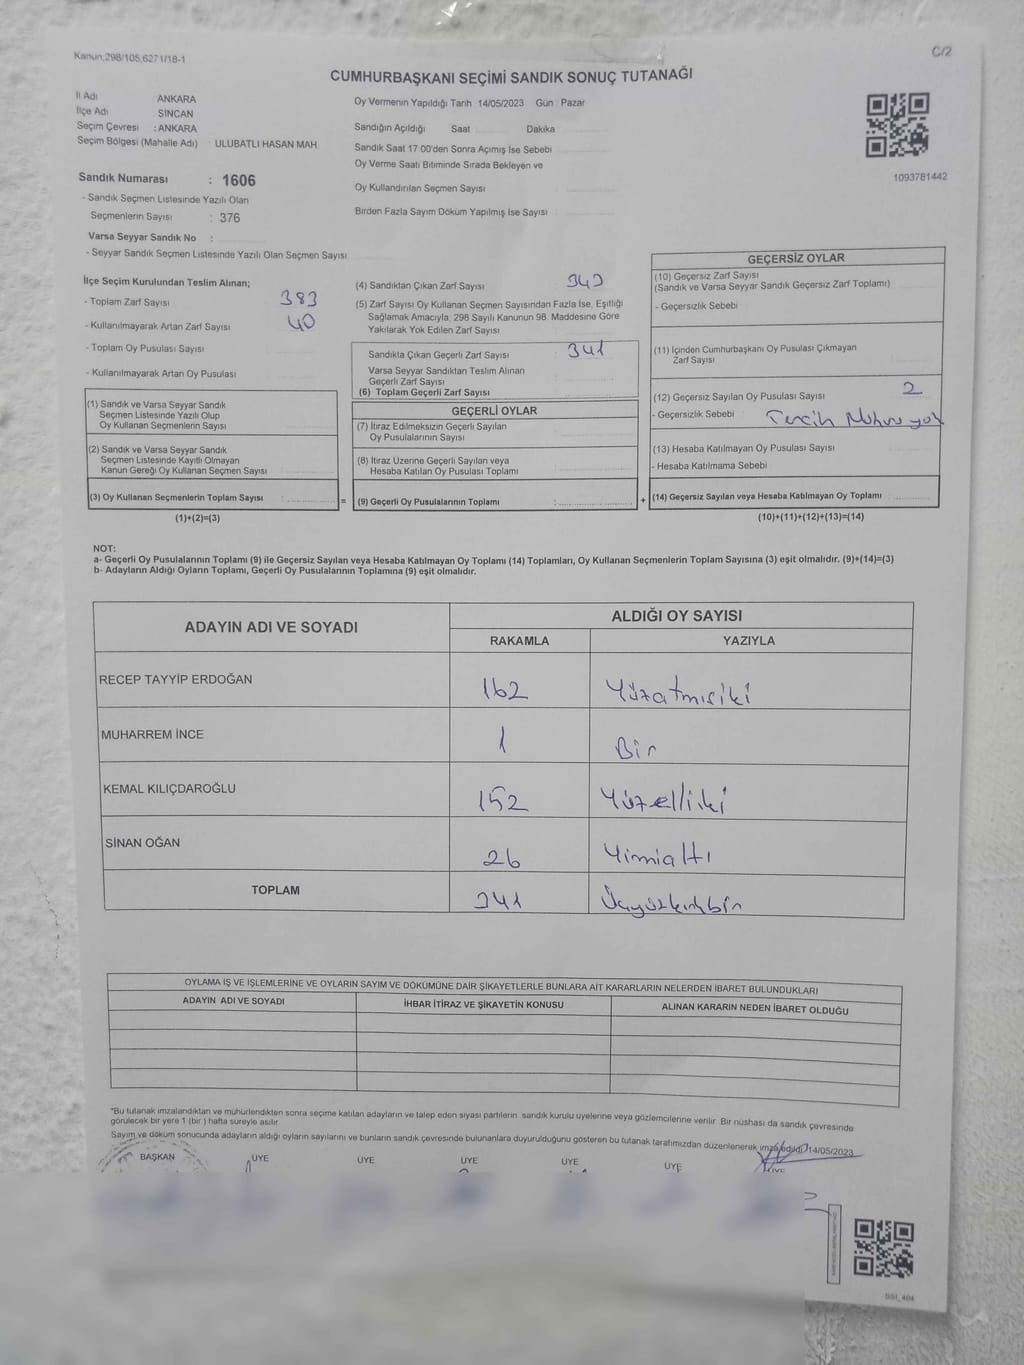 Kanun:298/105,6271/18-1
C/2
CUMHURBAŞKANI SEÇİMİ SANDIK SONUÇ TUTANAĞI
İl Adı ANKARA
İlçe Adı SİNCAN
Seçim Çevresi : ANKARA
Seçim Bölgesi (Mahalle Adı) : ULUBATLI HASAN MAH.
Oy Vermenin Yapıldığı Tarih 14/05/2023 Gün Pazar
Sandığın Açıldığı Saat Dakika
Sandık Saat 17:00'den Sonra Açımış İse Sebebi
Oy Verme Saati Bitiminde Sırada Bekleyen ve
Oy Kullandırılan Seçmen Sayısı
Birden Fazla Sayım Döküm Yapılmış İse Sayısı
1093781442
Sandık Numarası : 1606
- Sandık Seçmen Listesinde Yazılı Olan
Seçmenlerin Sayısı : 376
Varsa Seyyar Sandık No :
- Seyyar Sandık Seçmen Listesinde Yazılı Olan Seçmen Sayısı
İlçe Seçim Kurulundan Teslim Alınan;
- Toplam Zarf Sayısı 383
- Kullanılmayarak Artan Zarf Sayısı 40
- Toplam Oy Pusulası Sayısı
- Kullanılmayarak Artan Oy Pusulası
(1) Sandık ve Varsa Seyyar Sandık
Seçmen Listesinde Yazılı Olup
Oy Kullanan Seçmenlerin Sayısı
(2) Sandık ve Varsa Seyyar Sandık
Seçmen Listesinde Kayıtlı Olmayan
Kanun Gereği Oy Kullanan Seçmen Sayısı
(3) Oy Kullanan Seçmenlerin Toplam Sayısı : =
(1)+(2)=(3)
(4) Sandıktan Çıkan Zarf Sayısı 343
(5) Zarf Sayısı Oy Kullanan Seçmen Sayısından Fazla İse, Eşitliği
Sağlamak Amacıyla, 298 Sayılı Kanunun 98. Maddesine Göre
Yakılarak Yok Edilen Zarf Sayısı
Sandıkta Çıkan Geçerli Zarf Sayısı : 341
Varsa Seyyar Sandıktan Teslim Alınan
Geçerli Zarf Sayısı
(6) Toplam Geçerli Zarf Sayısı
GEÇERLİ OYLAR
(7) İtiraz Edilmeksizin Geçerli Sayılan
Oy Pusulalarının Sayısı
(8) İtiraz Üzerine Geçerli Sayılan veya
Hesaba Katılan Oy Pusulası Toplamı
(9) Geçerli Oy Pusulalarının Toplamı : +
GEÇERSİZ OYLAR
(10) Geçersiz Zarf Sayısı
(Sandık ve Varsa Seyyar Sandık Geçersiz Zarf Toplamı)
- Geçersizlik Sebebi
(11) İçinden Cumhurbaşkanı Oy Pusulası Çıkmayan
Zarf Sayısı
(12) Geçersiz Sayılan Oy Pusulası Sayısı 2
- Geçersizlik Sebebi Tercih Mührü yok
(13) Hesaba Katılmayan Oy Pusulası Sayısı
- Hesaba Katılmama Sebebi
(14) Geçersiz Sayılan veya Hesaba Katılmayan Oy Toplamı
(10)+(11)+(12)+(13)=(14)
NOT:
a- Geçerli Oy Pusulalarının Toplamı (9) ile Geçersiz Sayılan veya Hesaba Katılmayan Oy Toplamı (14) Toplamları, Oy Kullanan Seçmenlerin Toplam Sayısına (3) eşit olmalıdır. (9)+(14)=(3)
b- Adayların Aldığı Oyların Toplamı, Geçerli Oy Pusulalarının Toplamına (9) eşit olmalıdır.
ADAYIN ADI VE SOYADI ALDIĞI OY SAYISI
RAKAMLA YAZIYLA
RECEP TAYYİP ERDOĞAN 162 Yüzatmışiki
MUHARREM İNCE 1 Bir
KEMAL KILIÇDAROĞLU 152 Yüzelliiki
SİNAN OĞAN 26 Yimialtı
TOPLAM 341 Üçyüzkırkbir
OYLAMA İŞ VE İŞLEMLERİNE VE OYLARIN SAYIM VE DÖKÜMÜNE DAİR ŞİKAYETLERLE BUNLARA AİT KARARLARIN NELERDEN İBARET BULUNDUKLARI
ADAYIN ADI VE SOYADI İHBAR İTİRAZ VE ŞİKAYETİN KONUSU ALINAN KARARIN NEDEN İBARET OLDUĞU
*Bu tutanak imzalandıktan ve mühürlendikten sonra seçime katılan adayların ve talep eden siyasi partilerin sandık kurulu üyelerine veya gözlemcilerine verilir. Bir nüshası da sandık çevresinde
görülecek bir yere 1 (bir ) hafta süreyle asılır.
Sayım ve döküm sonucunda adayların aldığı oyların sayılarını ve bunların sandık çevresinde bulunanlara duyurulduğunu gösteren bu tutanak tarafımızdan düzenlenerek imza edildi. 14/05/2023
BAŞKAN ÜYE ÜYE ÜYE ÜYE ÜYE ÜYE